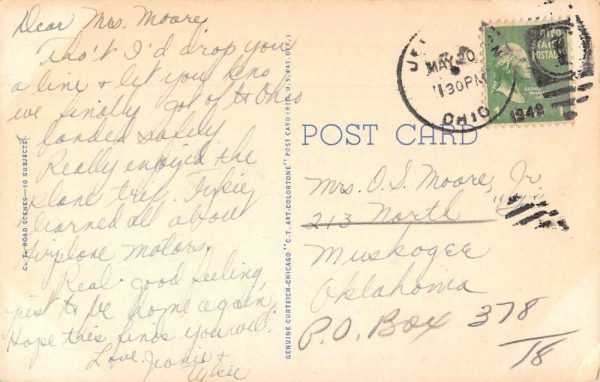 Dear Mrs. Moore,
Tho't I'd drop you
a line & let you kno
we finally got of to Ohio
landed safely
Really enjoyed the
plane trip.
learned all about
airplane motors.
Real good feeling
just to be home again,
Hope this finds you well.
Love. Joanie &
C. T. ROAD SCENES—10 SUBJECTS
GENUINE CURTEICH-CHICAGO "C. T. ART-COLORTONE" POST CARD (REG. U. S. PAT. OFF.)
POST CARD
MAY 20
1 30 PM
1949
OHIO
UNITED
STATES
POSTAGE
Mrs. O. S. Moore, Jr.
213 North
Muskogee
Oklahoma
P.O. Box 378
/18